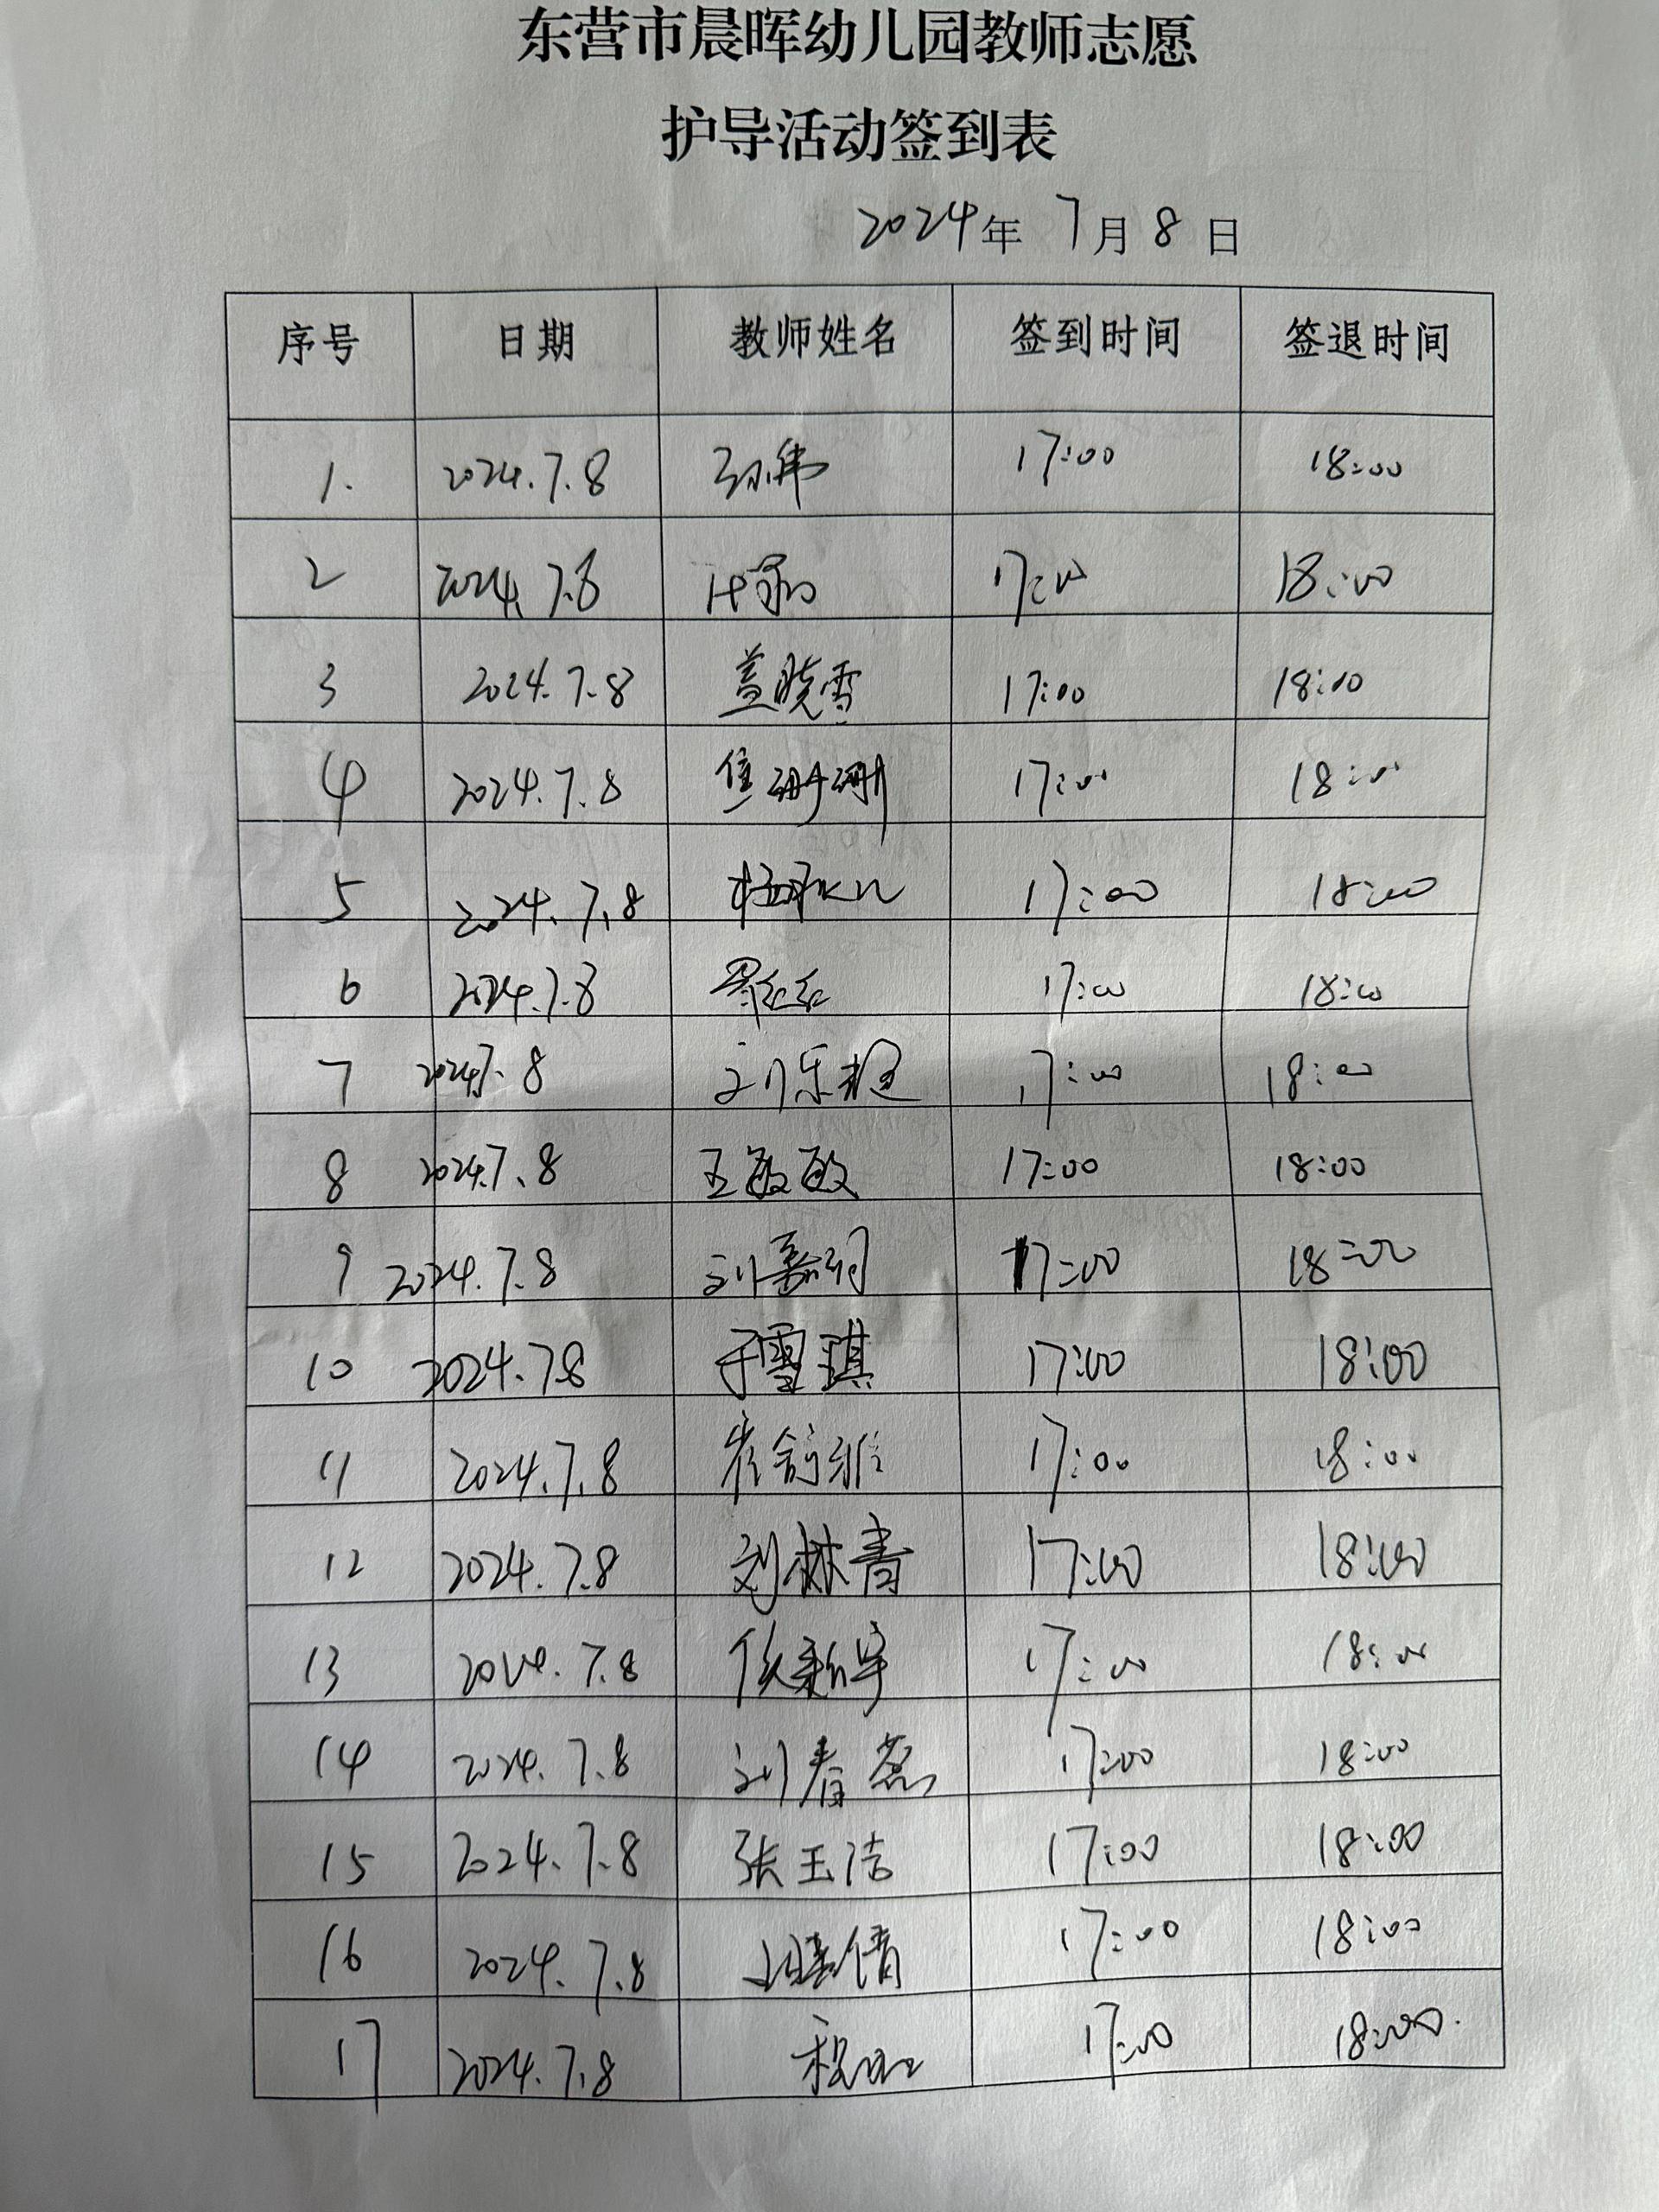 东营市晨晖幼儿园教师志愿
护导活动签到表
2024年 7月 8日
序号 日期 教师姓名 签到时间 签退时间
1. 2024.7.8 孙伟 17:00 18:00
2 2024.7.8 17:00 18:00
3 2024.7.8 盖晓雪 17:00 18:00
4 2024.7.8 焦珊珊 17:00 18:00
5 2024.7.8 17:00 18:00
6 2024.7.8 17:00 18:00
7 2024.7.8 刘乐 17:00 18:00
8 2024.7.8 王敏敏 17:00 18:00
9 2024.7.8 刘 17:00 18:00
10 2024.7.8 于雪琪 17:00 18:00
11 2024.7.8 崔舒雅 17:00 18:00
12 2024.7.8 刘林青 17:00 18:00
13 2024.7.8 17:00 18:00
14 2024.7.8 刘春蕊 17:00 18:00
15 2024.7.8 张玉洁 17:00 18:00
16 2024.7.8 倩 17:00 18:00
17 2024.7.8 17:00 18:00.